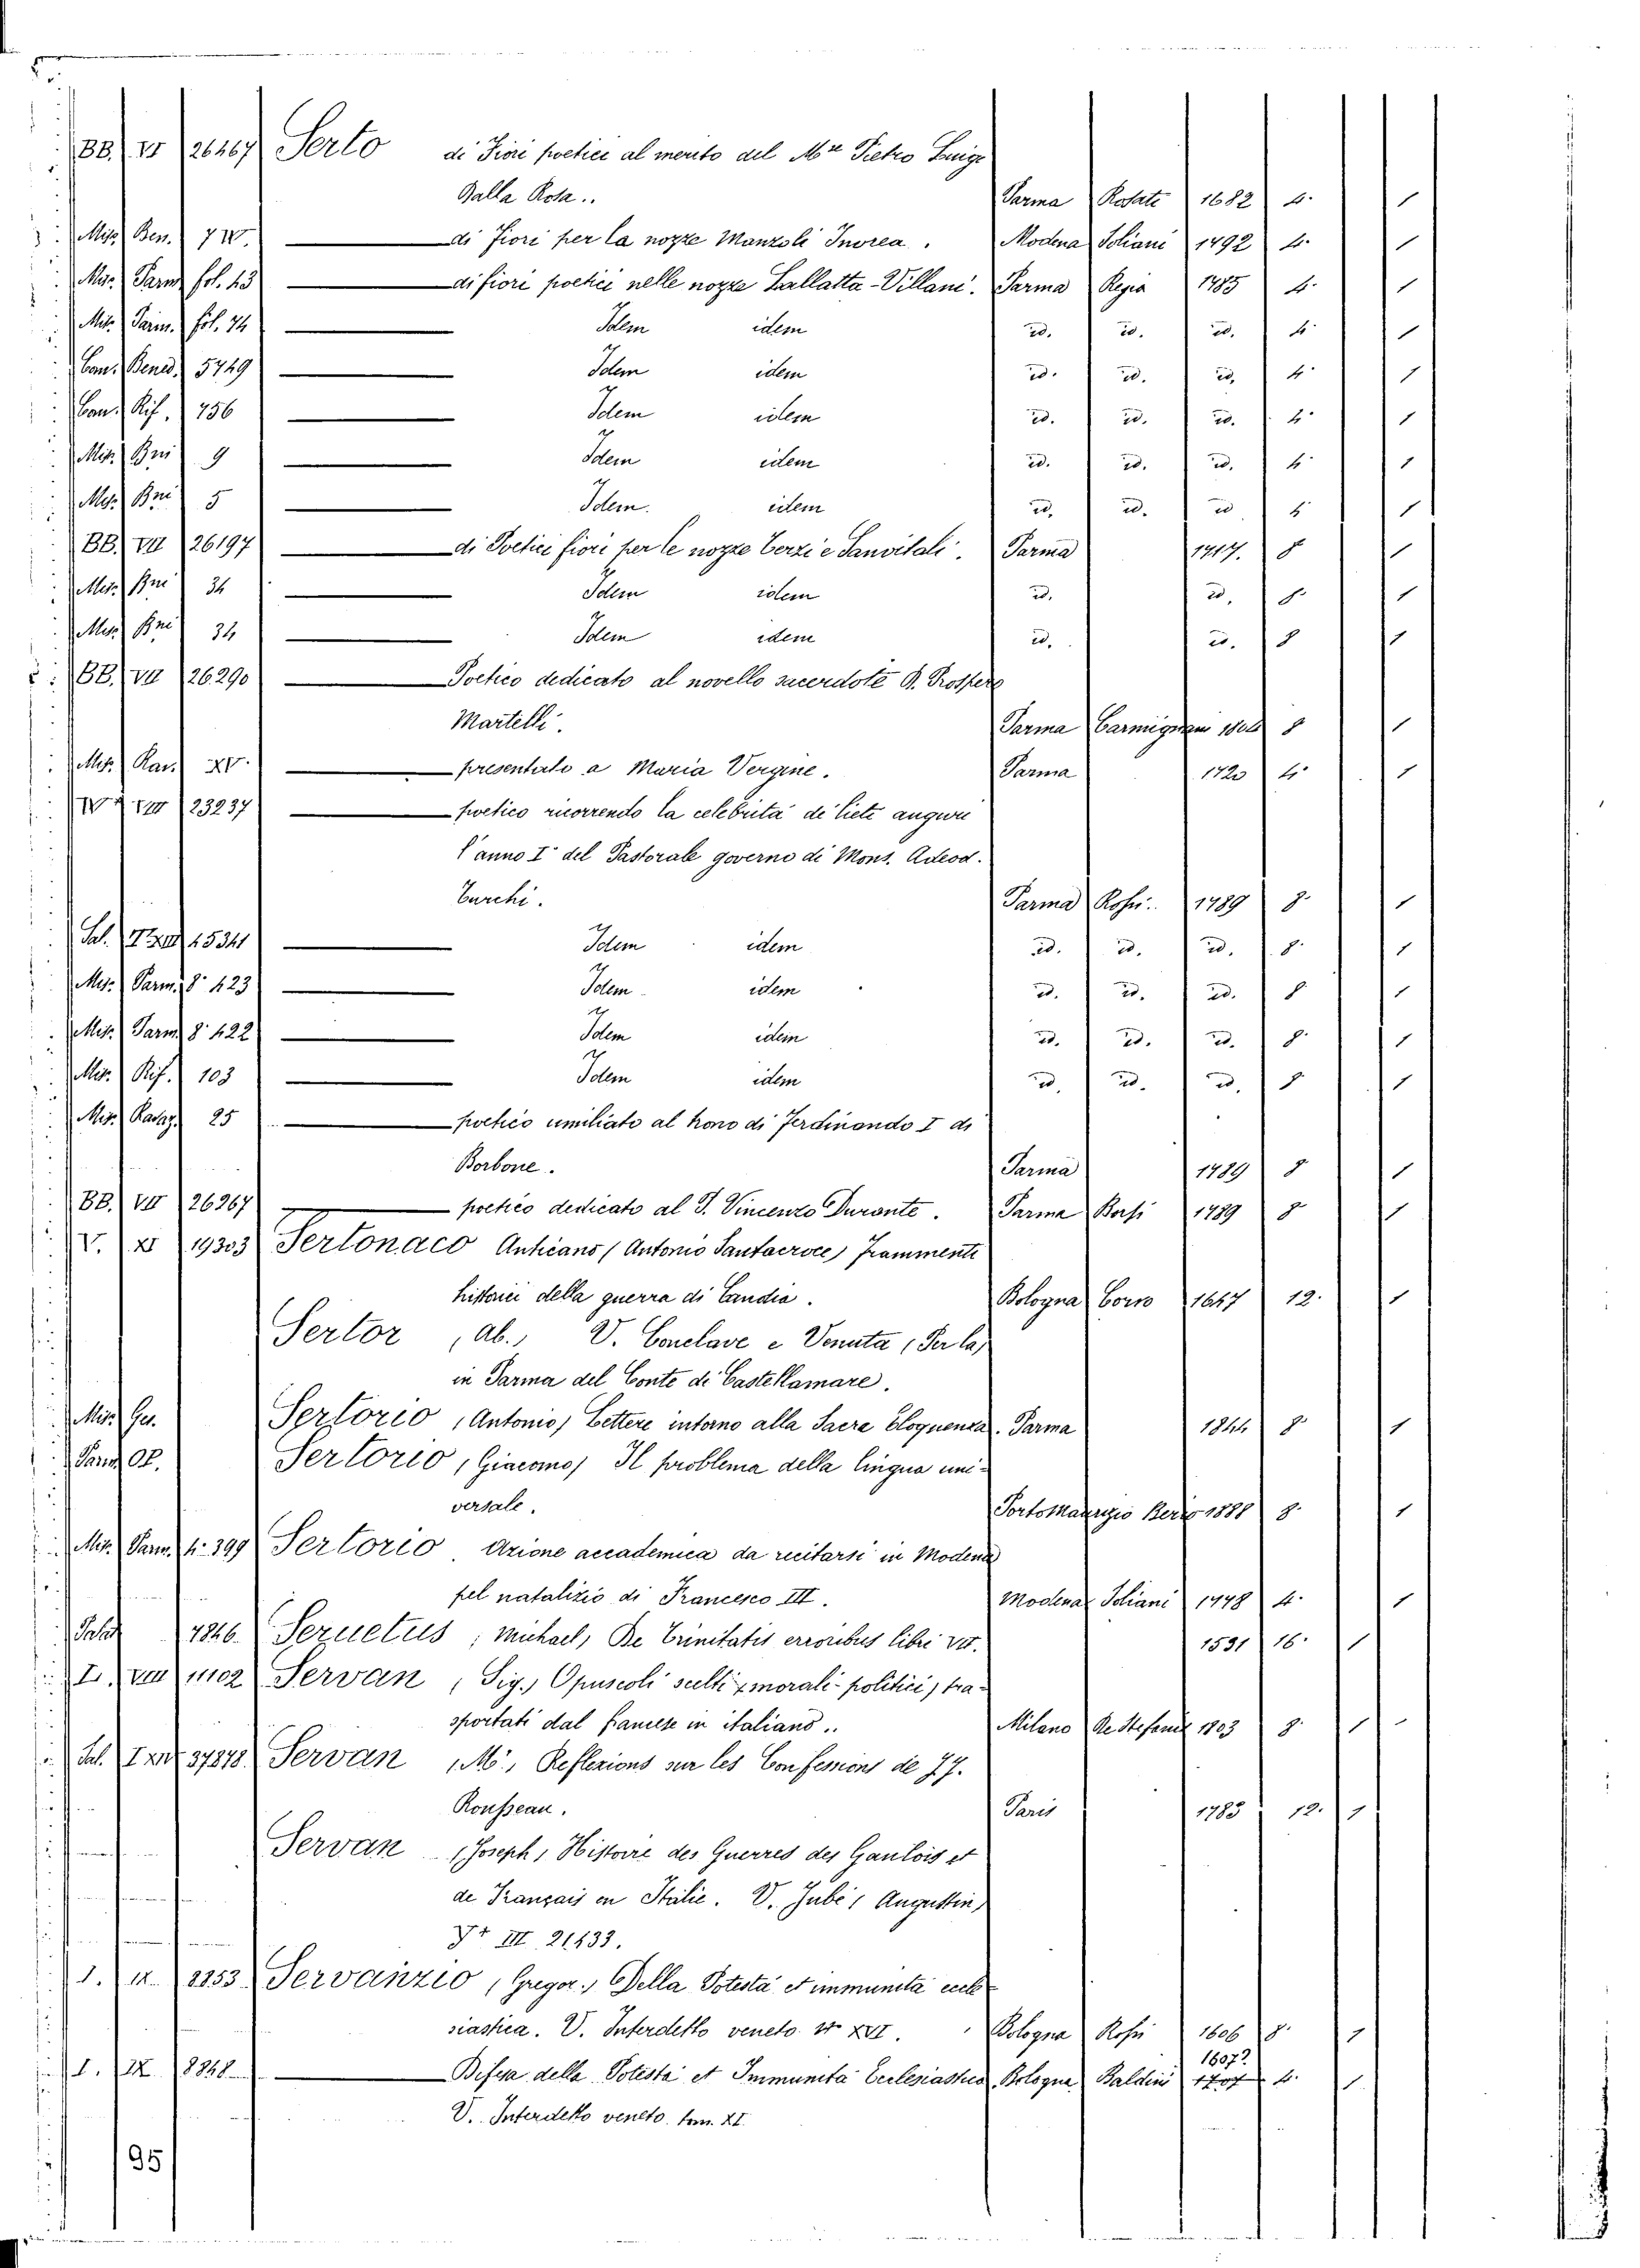 BB. VI 26467 Serto di Fiori poetici al merito del Mse Pietro Luigi
Dalla Rosa.. Parma Rosate 1682 4. 1
Misc. Ben. 7 IV. di fiori per la nozze Manzoli Inorea. Modena Soliani 1792 4. 1
Misc. Parm. fol. 43 di fiori poetici nelle nozze Lallatta-Villani. Parma Regia 1785 4. 1
Mis. Parm. fol. 74 Idem idem id. id. id. 4. 1
Con. Bened. 5749 Idem idem id. id. id. 4. 1
Con. Rif. 756 Idem idem id. id. id. 4. 1
Mis. Bni 9 Idem idem id. id. id. 4. 1
Mis. Bni 5 Idem. idem id. id. id 4 1
BB. VII 26197 di Poetici fiori per le nozze Terzi e Sanvitali. Parma 1717. 8 1
Mis. Bni 34 Idem idem id. id. 8. 1
Mis. Bni 34 Idem idem id. id. 8 1
BB. VII 26290 Poetico dedicato al novello sacerdote D. Prospero
Martelli. Parma Carmignani 8 1
Mis. Rav. XV. presentato a Maria Vergine. Parma 1720 4. 1
23237 poetico ricorrendo la celebrità di lieti augurii
l'anno I° del Pastorale governo di Mons. Adeod.
Turchi. Parma Rossi.. 1789 8. 1
Sal. 15341 Idem idem id. id. id. 8. 1
Mis. Parm. 8. 423 Idem idem id. id. id. 8 1
Mis. Parm. 8. 422 Idem idem id. id. id. 8. 1
Mis. Rif. 103 Idem idem id. id. id. 8. 1
Mis. Ravaz. 25 poetico umiliato al trono di Ferdinando I di
Borbone. Parma 1789 8 1
BB. VII 26267 poetico dedicato al P. Vincenzo Durante. Parma Bossi 1789 8 1
V. XI 19303 Sertonaco Anticano (Antonio Santacroce) Frammenti
historici della guerra di Candia. Bologna Corvo 1647 12. 1
Sertor (Ab.) V. Conclave e Venuta (Per la)
in Parma del Conte di Castellamare.
Mis. Ges. Sertorio (Antonio) Lettere intorno alla Sacra Eloquenza. Parma 1844 8 1
Parm. OP. Sertorio (Giacomo) Il problema della lingua uni-
versale. Porto Maurizio Berio 1888 8. 1
Mis. Parm. 4. 399 Sertorio. Azione accademica da recitarsi in Modena
pel natalizio di Francesco III. Modena Soliani 1748 4. 1
Palat. 4846. Seruetus (Michael) De Trinitatis erroribus libri VII. 1531 16. 1
I. VIII 11102 Servan (Sig.) Opuscoli scelti (morali-politici) tra-
sportati dal francese in italiano.. Milano De Stefanis 1803 8. 1
Sal. 37878 Servan (M.) Reflexions sur les Confessions de J.J.
Rousseau. Paris 1783 12. 1
Servan (Joseph) Histoire des Guerres des Gaulois et
de Français en Italie. V. Jubé (Augustin)
III 21433.
I. IX. 8853 Servanzio (Gregor.) Della Potestà et immunità eccle-
siastica. V. Interdetto veneto. XVI. Bologna Rossi 1606 8. 1
I. IX. 8848 Difesa della Potestà et Immunità Ecclesiastica. Bologna Baldini 1707 1607? 4. 1
V. Interdetto veneto tom. XI.
95